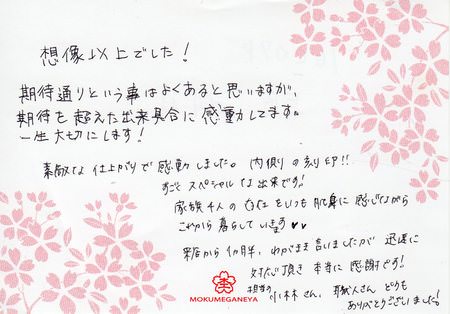 想像以上でした!
期待通りという事はよくあると思いますが、
期待を超えた出来具合に感動してます。
一生大切にします!
素敵な仕上がりで感動しました。内側の刻印!!
すごくスペシャルな出来です!
家族4人の存在をいつも肌身に感じながら
これから暮らしていきます♥♥
来店から1カ月半、わがまま言いましたが迅速に
対応頂き本当に感謝です!
担当の小林さん、職人さんどうも
ありがとうございました!
MOKUMEGANEYA